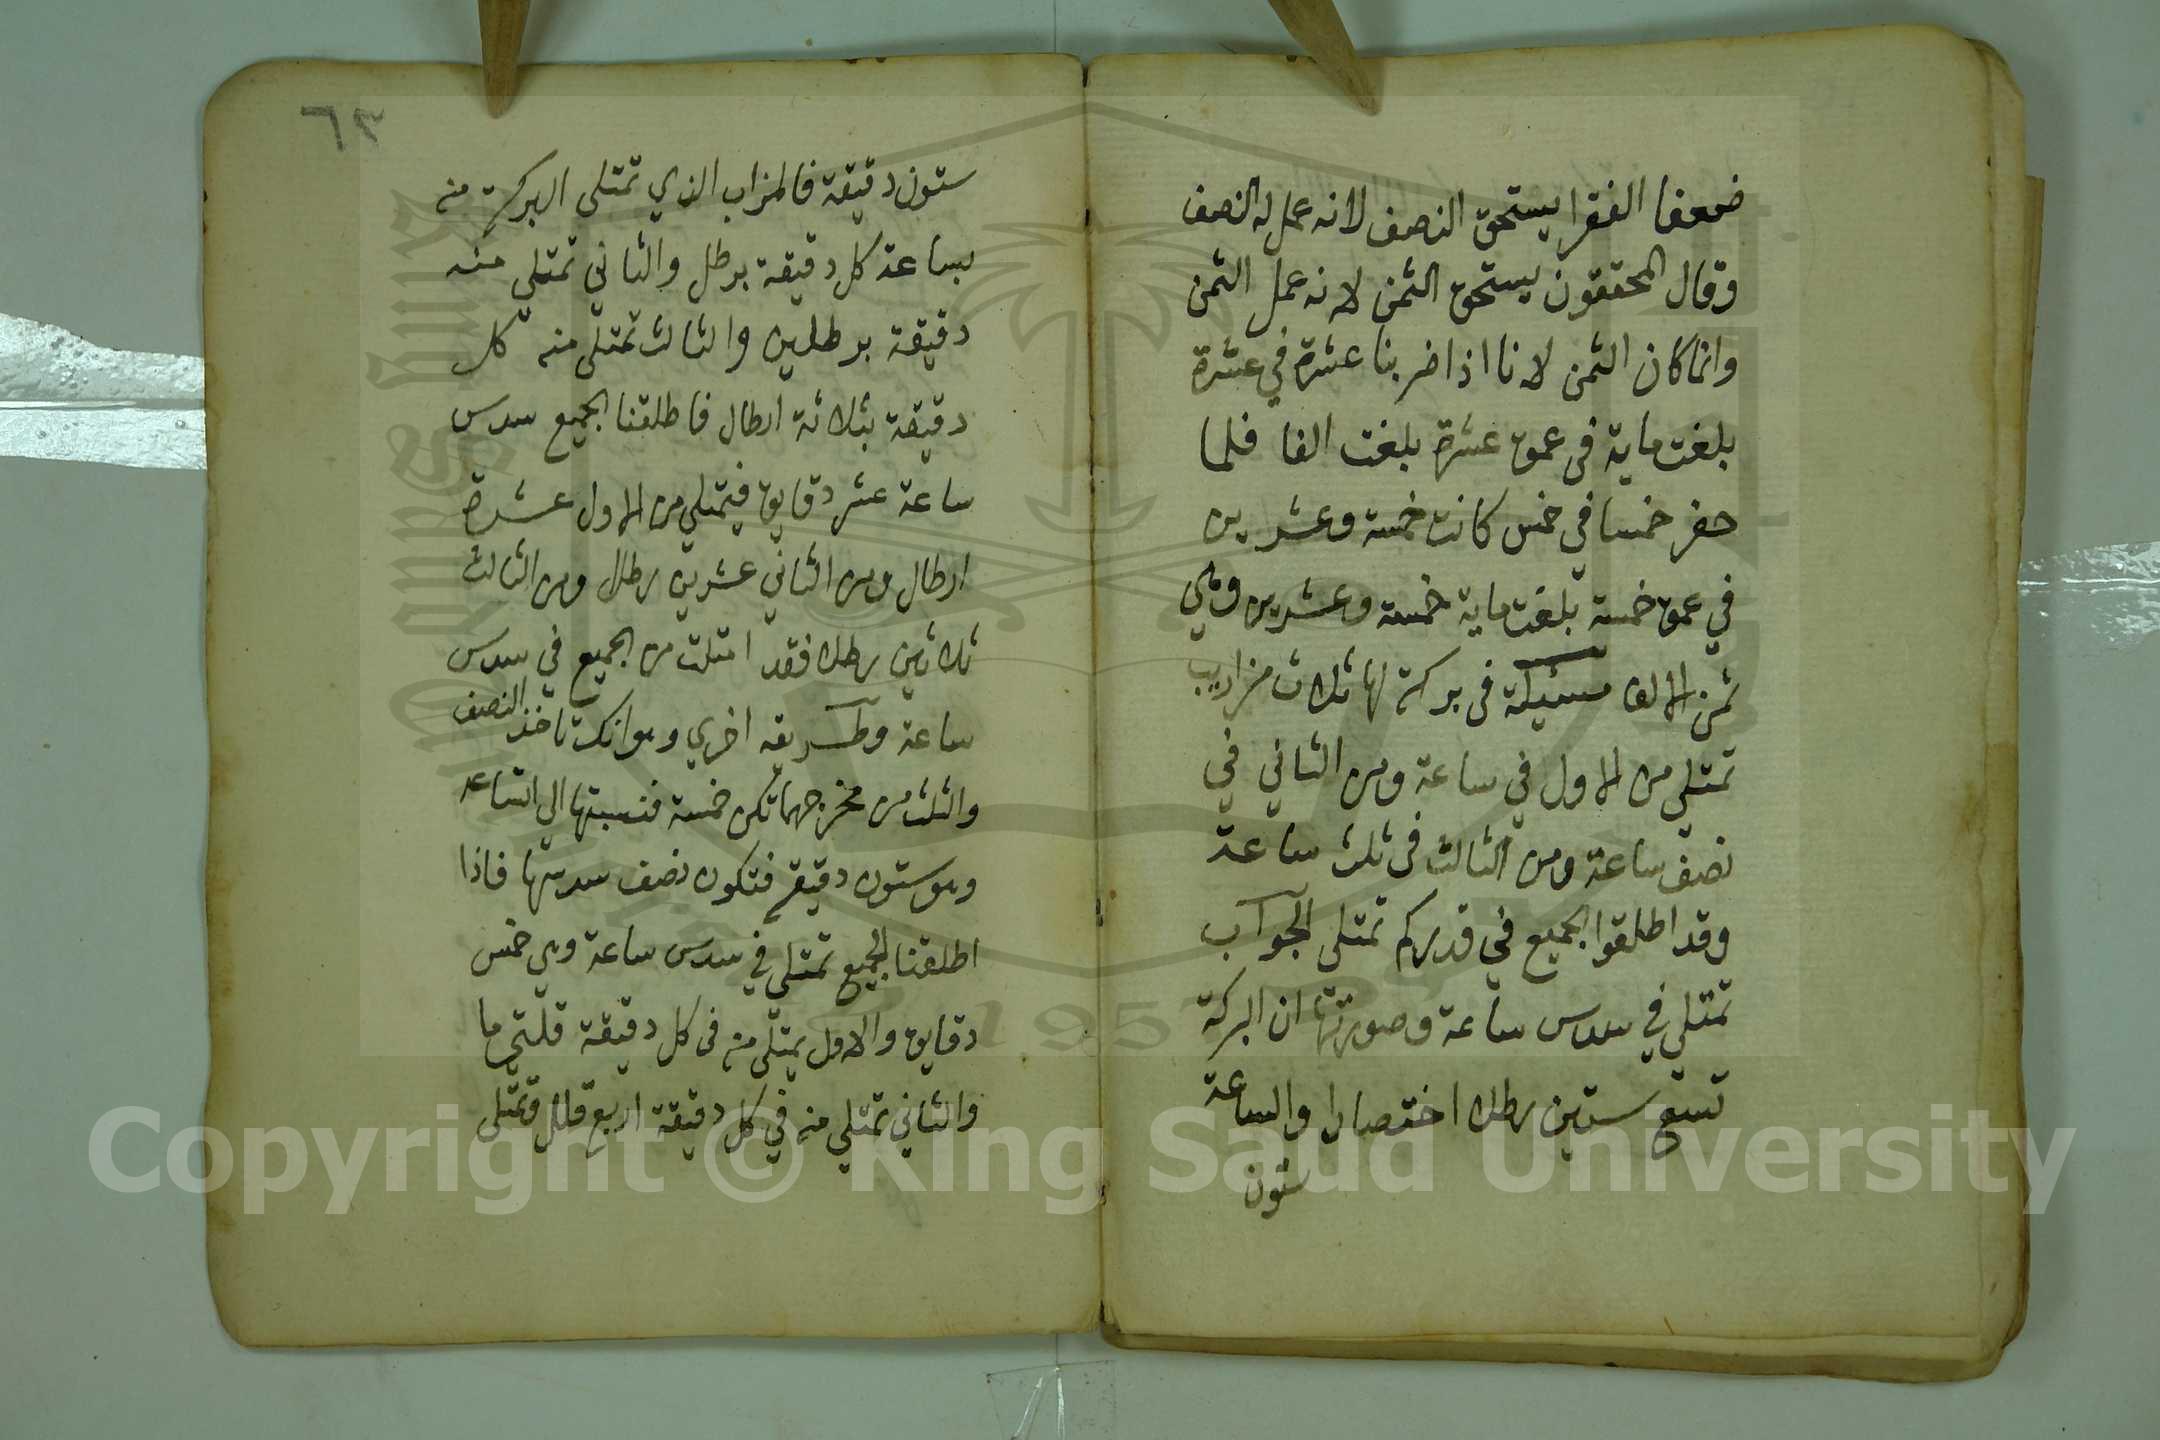 ضعفا الفقرا يستحق النصف لانه عمل له النصف
وقال المحققون يستحق الثمن لانه عمل الثمن
وانما كان الثمن لانا اذا ضربنا عشرة في عشرة
بلغت ماية في عمق عشرة بلغت الفا فلما
حفر خمسا في خمس كانت خمسة وعشرين
في عمق خمسة بلغت ماية خمسة وعشرين وهي
ثمن الالف مسئلة في بركة لها ثلاث مزاريب
تمتلي من الاول في ساعة ومن الثاني في
نصف ساعة ومن الثالث في ثلث ساعة
وقد اطلقوا الجميع في قدر كم تمتلي الجواب
تمتلي في سدس ساعة وصورتها ان البركة
تسع ستين رطلا اختصارا والساعة
ستون
٦٣
ستون دقيقة فالمزاب الذي تمتلى البركة منه
بساعة كل دقيقة برطل والثاني تمتلي منه
دقيقة برطلين والثالث تمتلى منه كل
دقيقة بثلاثة ارطال فاطلقنا الجميع سدس
ساعة عشر دقايق فيمتلي من الاول عشرة
ارطال ومن الثاني عشرين رطلا ومن الثالث
ثلاثين رطلا فقد امتلت من الجميع في سدس
ساعة وطريقه اخري وهو انك تاخذ النصف
والثلث من مخرجهما تكن خمسة فنسبتها الي الساعه
وهو ستون دقيقة فتكون نصف سدسها فاذا
اطلقنا الجميع تمتلي في سدس ساعة وهي خمس
دقايق والاول يمتلي منه في كل دقيقة قلتي ما
والثاني تمتلي منه في كل دقيقة اربع قلل وتمتلى
Copyright © King Saud University
1957